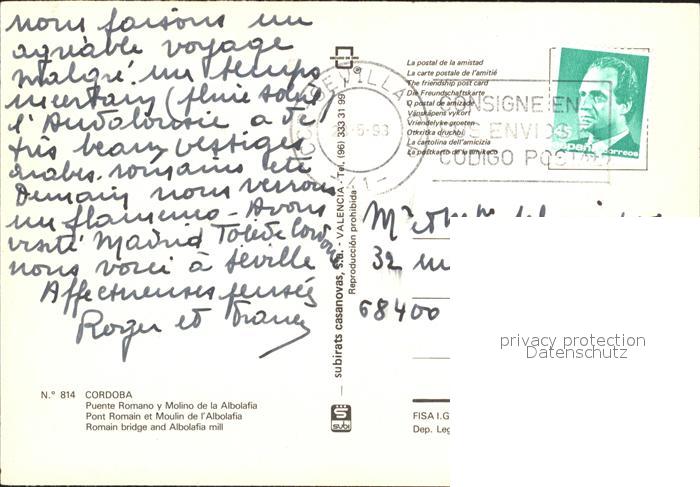 nous faisons un
agréable voyage
malgré un temps
incertain (pluie soleil
l'Andalousie a de
très beaux vestiges
arabes. romains etc
Demain nous verrons
un flamenco - Avons
visité Madrid Tolède Cordoue
nous voici à Séville
Affectueuses pensées
Roger et
N.° 814 CORDOBA
Puente Romano y Molino de la Albolafia
Pont Romain et Moulin de l'Albolafia
Romain bridge and Albolafia mill
subirats casanovas, s.a. - VALENCIA - Tel. (96) 333 31 99
Reproducción prohibida
subi
La postal de la amistad
La carte postale de l'amitié
The friendship post card
Die Freundschaftskarte
O postal de amizade
Vänskapens vykort
Vriendelyke groeten
Otkritka druchbi
La cartolina dell'amicizia
La postkarto de la amikeco
SEVILLA
-5-93
CONSIGNE EN
SUS ENVIOS
CODIGO POSTAL
España correos
32
68400
privacy protection
Datenschutz
FISA I.G
Dep. Leg